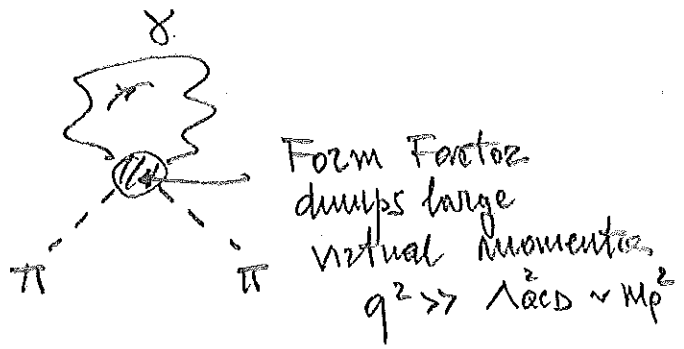 γ
Form Factor
dumps large
virtual momenta
π π q² >> Λ²QCD ~ Mρ²